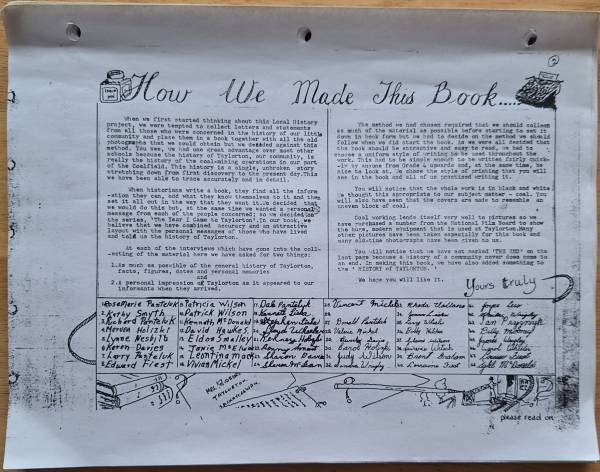 2
How We Made This Book.....
When we first started thinking about this Local History
project, we were tempted to collect letters and statements
from all those who were concerned in the history of our little
community and place them in a book together with all the old
photographs that we could obtain but we decided against this
method. You see, we had one great advantage over most other
schools because the history of Taylorton, our community, is
really the history of the coal-mining operations in our part
of the Coalfield. This history is a single, unbroken story
stretching down from first discovery to the present day. This
we have been able to trace accurately and in detail.
When historians write a book, they find all the inform
-ation they can, add what they know themselves to it and then
set it all out in the way that they want it. We decided that
we would do this but, at the same time we wanted a personal
message from each of the people concerned; so we decided on
the series, 'The Year I Came to Taylorton'. In our book, we
believe that we have combined accurate and an attractive
layout with the personal messages of those who have lived
and told us the history of Taylorton.
At each of the interviews which have gone into the coll-
-ecting of the material here we have asked for two things:
1. As much as possible of the general history of Taylorton,
facts, figures, dates and personal memories
and
2. A personal impression of Taylorton as it appeared to our
informants when they arrived.
The method we had chosen required that we should collect
as much of the material as possible before starting to set it
down in book form but we had to decide on the method we should
follow when we did start the book. As we were all decided that
the book should be attractive and easy to read, we had to
choose a uniform style of writing to be used throughout the
work. This had to be simple enough to be written fairly quick-
-ly by anyone from Grade 4 upwards and, at the same time, be
nice to look at. We chose the style of printing that you will
see in the book and all of us practised writing it.
You will notice that the whole work is in black and white.
We thought this appropriate to our subject matter - coal. You
will also have seen that the covers are made to resemble an
uneven block of coal.
Coal working lends itself very well to pictures so we
have purchased a number from the National Film Board to show
the huge, modern equipment that is used at Taylorton. Many
other pictures have been taken especially for this book and
many old-time photographs have been given to us.
You will notice that we have not marked 'THE END' on the
last page because a history of a community never does come to
an end. In making this book, we have also added something to
the 'HISTORY OF TAYLORTON.'
We hope you will like it.
Yours truly
1. RoseMarie Panteluk Patricia Wilson Dale Pantelyk Vincent Mickel
2. Kathy Smyth Patrick Wilson Kenneth
3. Richard Panteluk Kenneth McDonald Donald
4. Marvin Holitzki David Hawkes Lloyd Valerie Mickel
5. Lynne Nesbytt Eldon Smalley
6. Karen Davies Carol
7. Larry Panteluk Leontina Sharon Davie Judy Wilson
8. Edward Fiest Vivian Mickel Linda Wrigley Lorraine Fiest
TAYLORTON
please read on